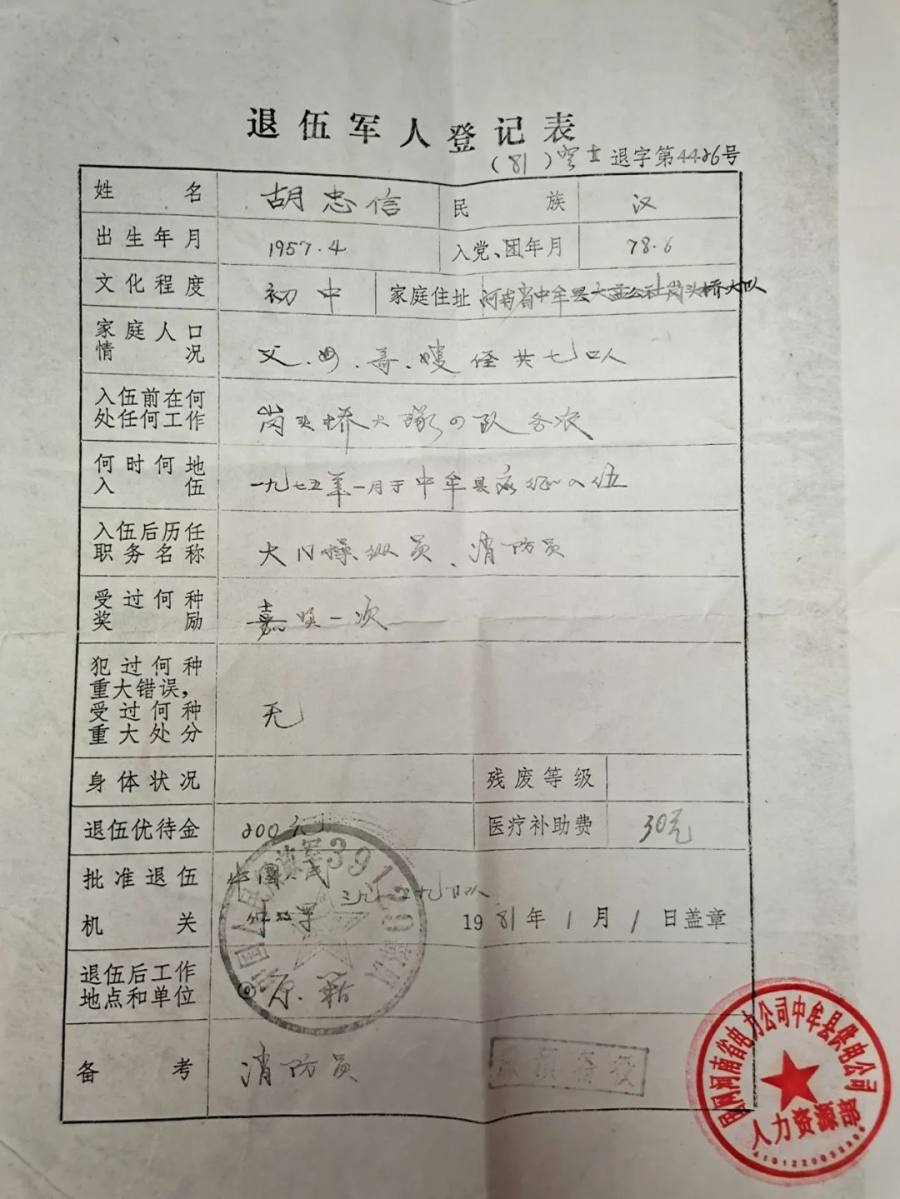 退伍军人登记表
(81)空士退字第4426号
姓名 胡忠信 民族 汉
出生年月 1957.4 入党、团年月 78.6
文化程度 初中 家庭住址 河南省中牟县大孟公社岗头桥大队
家庭人口
情况 父.母.哥.嫂 侄共七口人
入伍前在何
处任何工作 岗头桥大队四队务农
何时何地
入伍 一九七五年一月于中牟县应征入伍
入伍后历任
职务名称 操纵员、消防员
受过何种
奖励 嘉奖一次
犯过何种
重大错误，
受过何种
重大处分 无
身体状况 残废等级
退伍优待金 200元 医疗补助费 30元
批准退伍
机关 1981年1月1日盖章
中国人民解放军39129部队
退伍后工作
地点和单位 原籍
备考 消防员
国网河南省电力公司中牟县供电公司
人力资源部